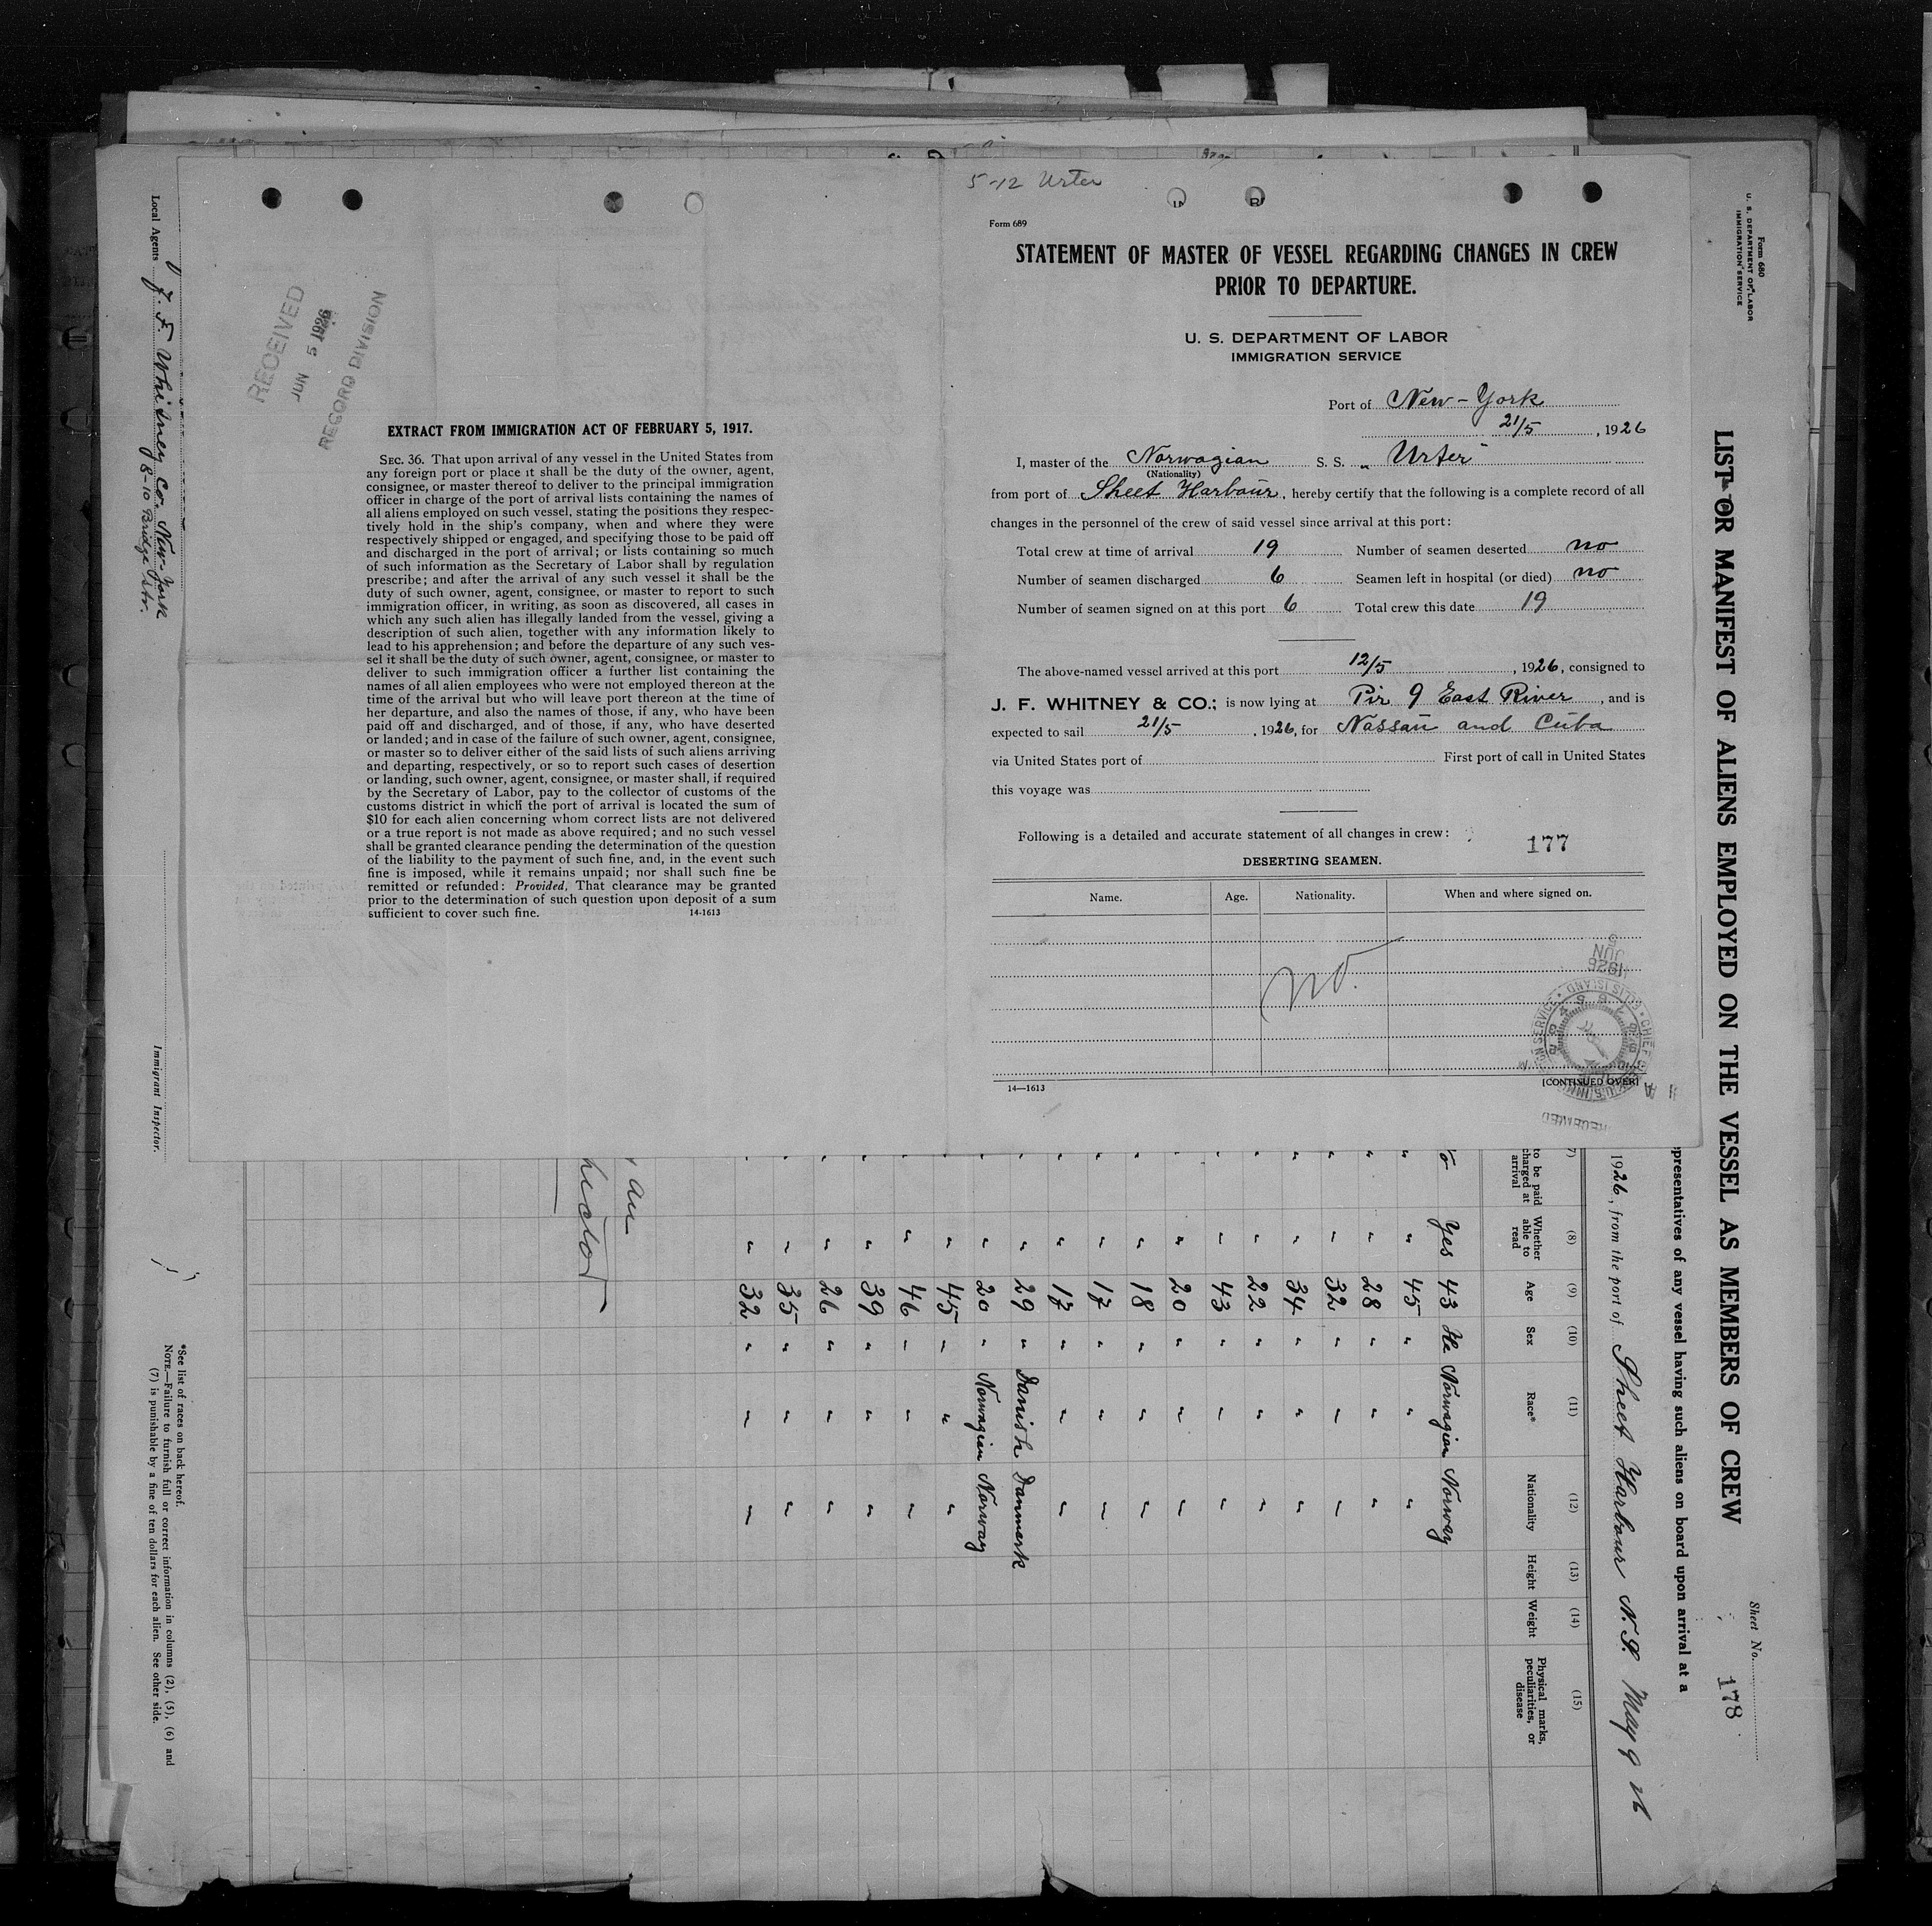 5-12 Urter
Form 689
STATEMENT OF MASTER OF VESSEL REGARDING CHANGES IN CREW
PRIOR TO DEPARTURE.
U. S. DEPARTMENT OF LABOR
IMMIGRATION SERVICE
Port of New-York
21/5, 1926
I, master of the Norwagian S. S. „Urter"
(Nationality)
from port of Sheet Harbour, hereby certify that the following is a complete record of all
changes in the personnel of the crew of said vessel since arrival at this port:
Total crew at time of arrival 19 Number of seamen deserted no
Number of seamen discharged 6 Seamen left in hospital (or died) no
Number of seamen signed on at this port 6 Total crew this date 19
The above-named vessel arrived at this port 12/5, 1926, consigned to
J. F. WHITNEY & CO.; is now lying at Pir 9 East River, and is
expected to sail 21/5, 1926, for Nassau and Cuba
via United States port of First port of call in United States
this voyage was
Following is a detailed and accurate statement of all changes in crew:
177
DESERTING SEAMEN.
Name. Age. Nationality. When and where signed on.
no.
14—1613
[CONTINUED OVER]
RECEIVED
JUN 5 1926
RECORD DIVISION
EXTRACT FROM IMMIGRATION ACT OF FEBRUARY 5, 1917.
SEC. 36. That upon arrival of any vessel in the United States from
any foreign port or place it shall be the duty of the owner, agent,
consignee, or master thereof to deliver to the principal immigration
officer in charge of the port of arrival lists containing the names of
all aliens employed on such vessel, stating the positions they respec-
tively hold in the ship's company, when and where they were
respectively shipped or engaged, and specifying those to be paid off
and discharged in the port of arrival; or lists containing so much
of such information as the Secretary of Labor shall by regulation
prescribe; and after the arrival of any such vessel it shall be the
duty of such owner, agent, consignee, or master to report to such
immigration officer, in writing, as soon as discovered, all cases in
which any such alien has illegally landed from the vessel, giving a
description of such alien, together with any information likely to
lead to his apprehension; and before the departure of any such ves-
sel it shall be the duty of such owner, agent, consignee, or master to
deliver to such immigration officer a further list containing the
names of all alien employees who were not employed thereon at the
time of the arrival but who will leave port thereon at the time of
her departure, and also the names of those, if any, who have been
paid off and discharged, and of those, if any, who have deserted
or landed; and in case of the failure of such owner, agent, consignee,
or master so to deliver either of the said lists of such aliens arriving
and departing, respectively, or so to report such cases of desertion
or landing, such owner, agent, consignee, or master shall, if required
by the Secretary of Labor, pay to the collector of customs of the
customs district in which the port of arrival is located the sum of
$10 for each alien concerning whom correct lists are not delivered
or a true report is not made as above required; and no such vessel
shall be granted clearance pending the determination of the question
of the liability to the payment of such fine, and, in the event such
fine is imposed, while it remains unpaid; nor shall such fine be
remitted or refunded: Provided, That clearance may be granted
prior to the determination of such question upon deposit of a sum
sufficient to cover such fine.
14-1613
Form 680
U. S. DEPARTMENT OF LABOR
IMMIGRATION SERVICE
Sheet No.
178
LIST OR MANIFEST OF ALIENS EMPLOYED ON THE VESSEL AS MEMBERS OF CREW
presentatives of any vessel having such aliens on board upon arrival at a
1926, from the port of Sheet Harbour N.S. May 9 26
7) (8) (9) (10) (11) (12) (13) (14) (15)
to be paid charged at arrival Whether able to read Age Sex Race* Nationality Height Weight Physical marks, peculiarities, or disease
Yes 43 He Norwagian Norway
" " 45 " " "
" " 28 " " "
" " 32 " " "
" " 34 " " "
" " 22 " " "
" " 43 " " "
" " 20 " " "
" " 18 " " "
" " 17 " " "
" " 17 " " "
" " 29 " Danish Danmark
" " 20 " Norwagian Norway
" " 45 " " "
" " 46 " " "
" " 39 " " "
" " 26 " " "
" " 35 " " "
" " 32 " " "
*See list of races on back hereof.
NOTE.—Failure to furnish full or correct information in columns (2), (5), (6) and
(7) is punishable by a fine of ten dollars for each alien. See other side.
Local Agents J. F. Whitney Co. New-York
8-10 Bridge Str.
Immigrant Inspector.